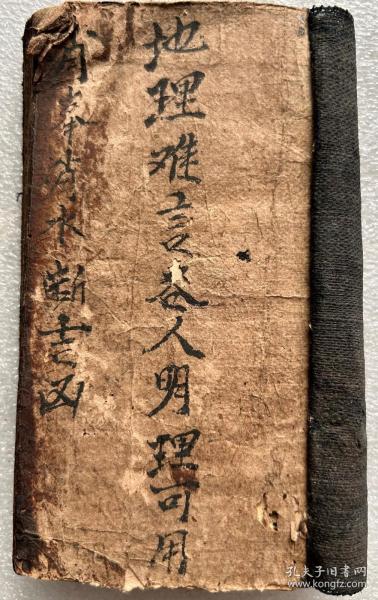 地理难言吞人明理可用
水断言凶
孔夫子旧书网
www.kongfz.com